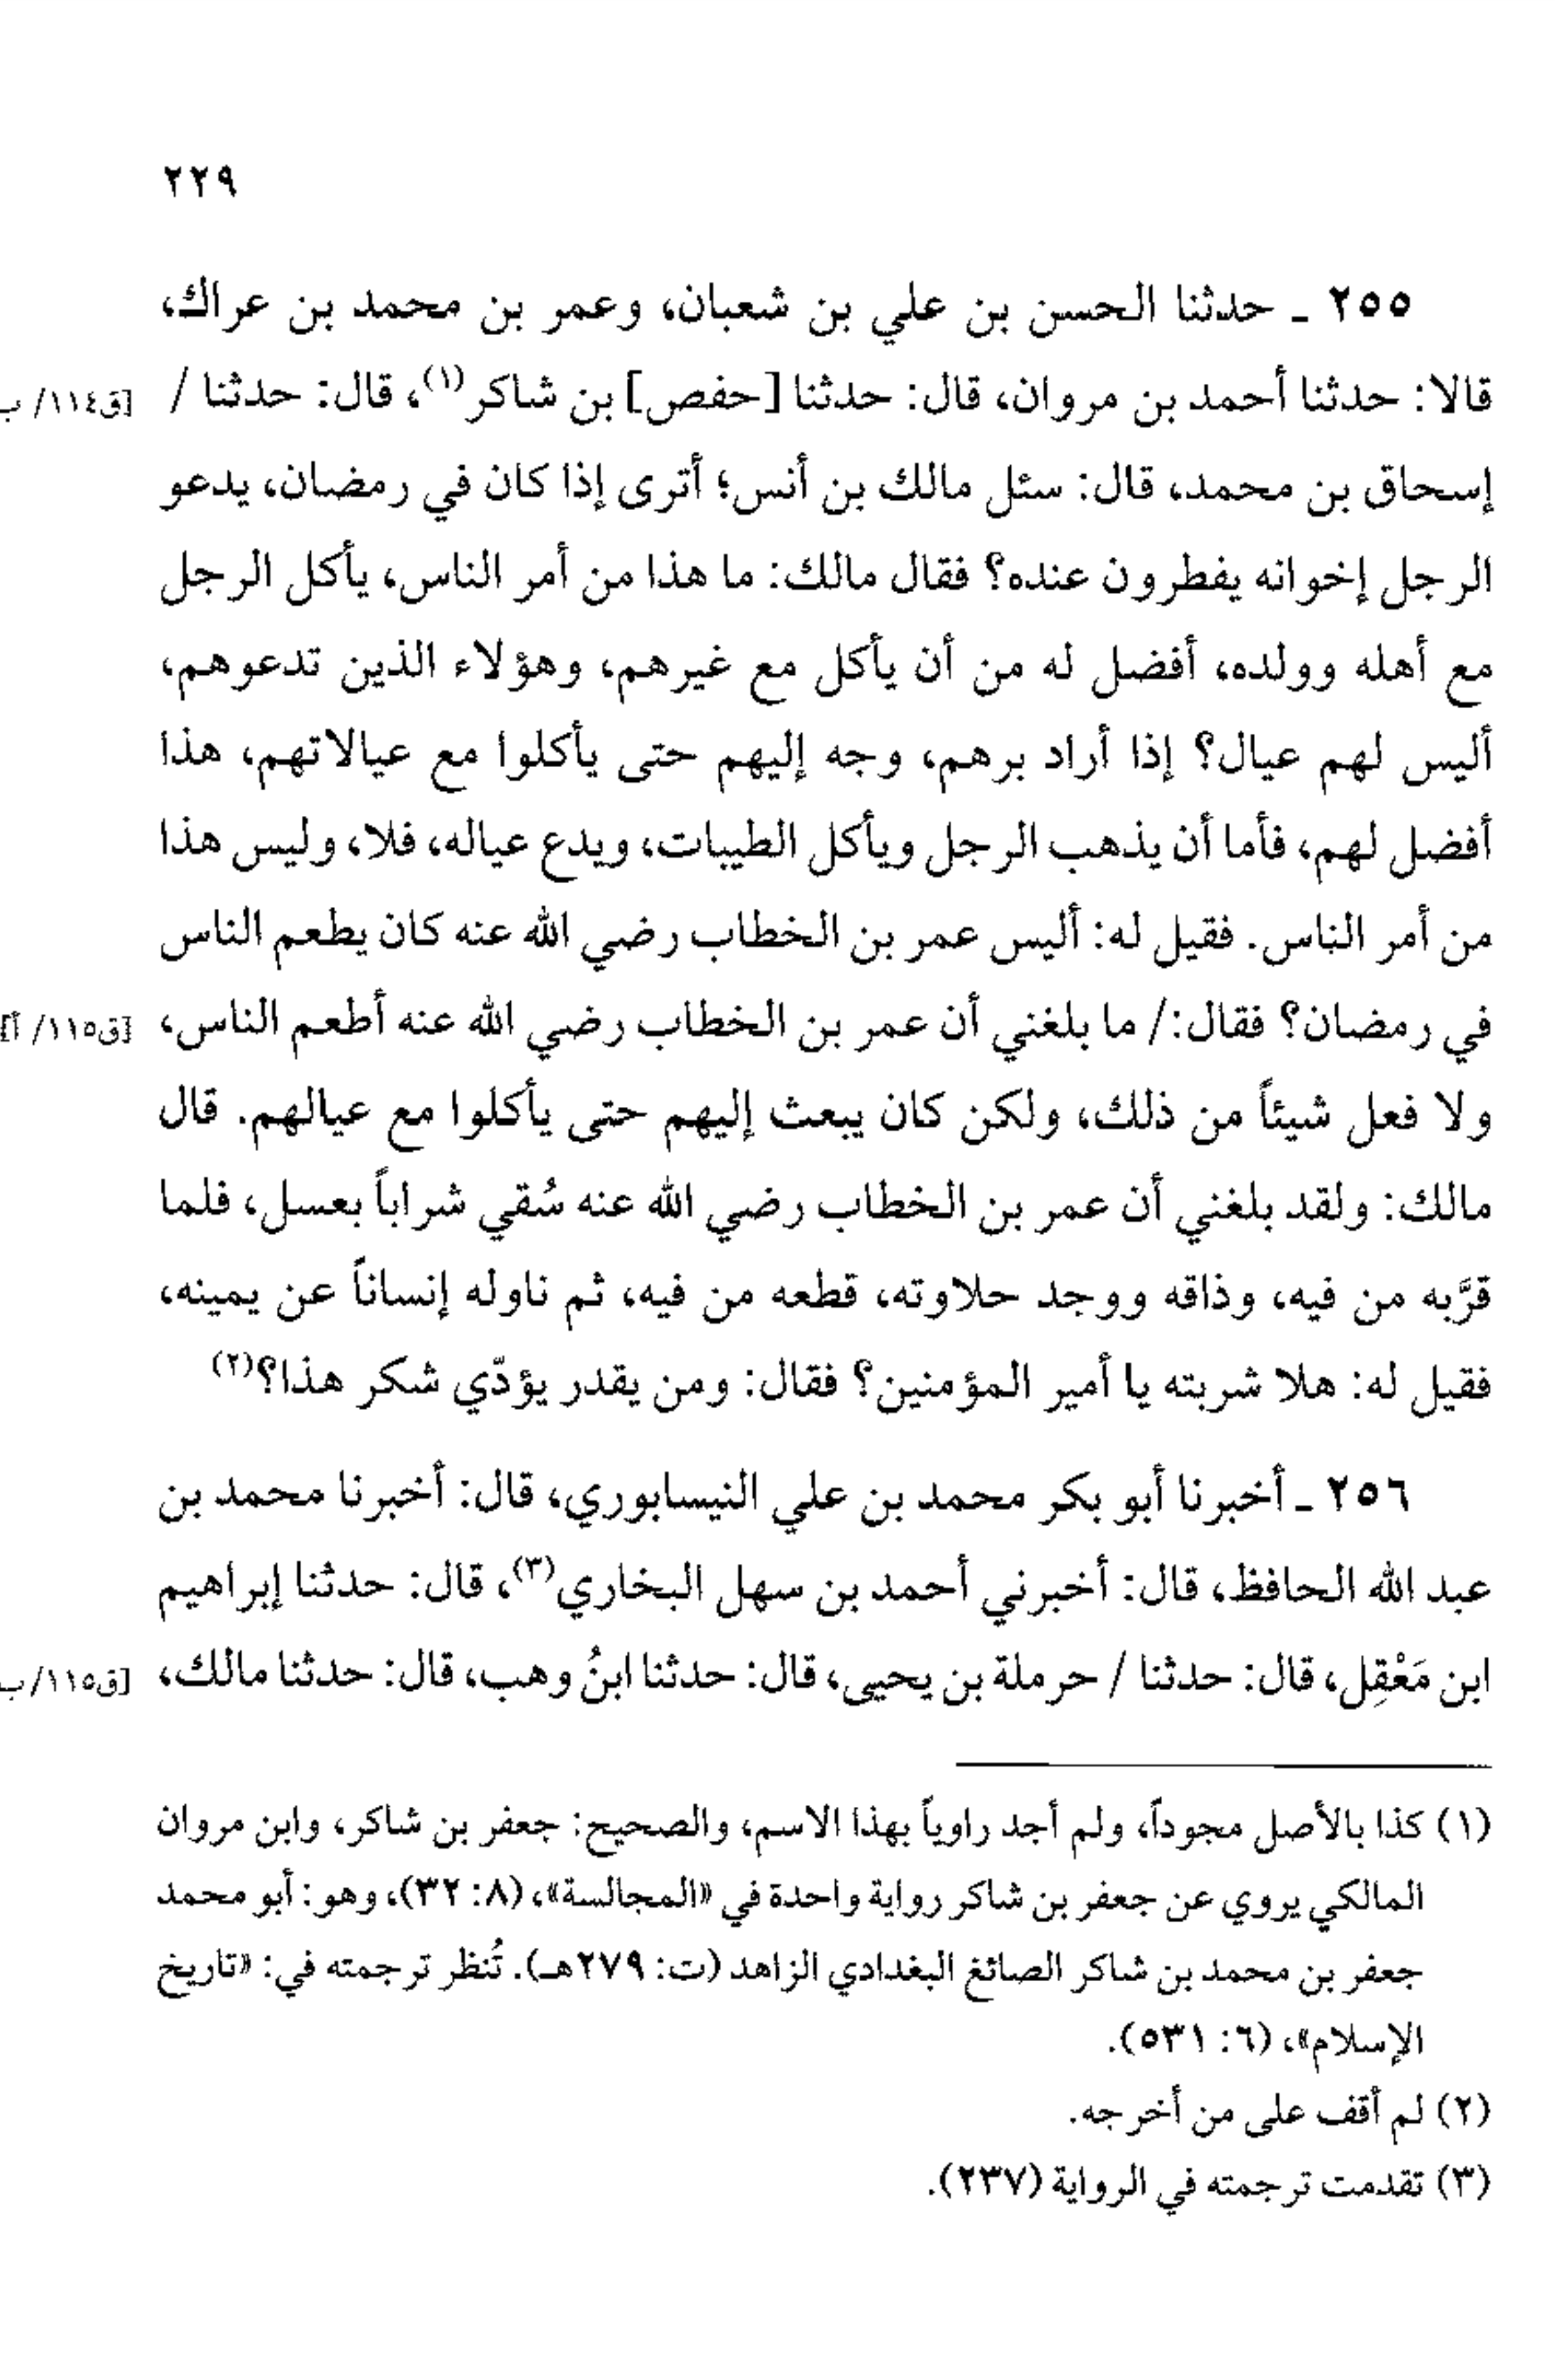 ٢٢٩
٢٥٥ ـ حدثنا الحسن بن علي بن شعبان، وعمر بن محمد بن عراك،
قالا: حدثنا أحمد بن مروان، قال: حدثنا [حفص] بن شاكر(١)، قال: حدثنا / [ق١١٤/ ب
إسحاق بن محمد، قال: سئل مالك بن أنس؛ أترى إذا كان في رمضان، يدعو
الرجل إخوانه يفطرون عنده؟ فقال مالك: ما هذا من أمر الناس، يأكل الرجل
مع أهله وولده، أفضل له من أن يأكل مع غيرهم، وهؤلاء الذين تدعوهم،
أليس لهم عيال؟ إذا أراد برهم، وجه إليهم حتى يأكلوا مع عيالاتهم، هذا
أفضل لهم، فأما أن يذهب الرجل ويأكل الطيبات، ويدع عياله، فلا، وليس هذا
من أمر الناس. فقيل له: أليس عمر بن الخطاب رضي الله عنه كان يطعم الناس
في رمضان؟ فقال:/ ما بلغني أن عمر بن الخطاب رضي الله عنه أطعم الناس، [ق١١٥/ أ]
ولا فعل شيئاً من ذلك، ولكن كان يبعث إليهم حتى يأكلوا مع عيالهم. قال
مالك: ولقد بلغني أن عمر بن الخطاب رضي الله عنه سُقي شراباً بعسل، فلما
قرَّبه من فيه، وذاقه ووجد حلاوته، قطعه من فيه، ثم ناوله إنساناً عن يمينه،
فقيل له: هلا شربته يا أمير المؤمنين؟ فقال: ومن يقدر يؤدّي شكر هذا؟(٢)
٢٥٦ ـ أخبرنا أبو بكر محمد بن علي النيسابوري، قال: أخبرنا محمد بن
عبد الله الحافظ، قال: أخبرني أحمد بن سهل البخاري(٣)، قال: حدثنا إبراهيم
ابن مَعْقِل، قال: حدثنا / حرملة بن يحيى، قال: حدثنا ابنُ وهب، قال: حدثنا مالك، [ق١١٥/ ب
(١) كذا بالأصل مجوداً، ولم أجد راوياً بهذا الاسم، والصحيح: جعفر بن شاكر، وابن مروان
المالكي يروي عن جعفر بن شاكر رواية واحدة في «المجالسة»، (٨: ٣٢)، وهو: أبو محمد
جعفر بن محمد بن شاكر الصائغ البغدادي الزاهد (ت: ٢٧٩هـ). تُنظر ترجمته في: «تاريخ
الإسلام»، (٦: ٥٣١).
(٢) لم أقف على من أخرجه.
(٣) تقدمت ترجمته في الرواية (٢٣٧).